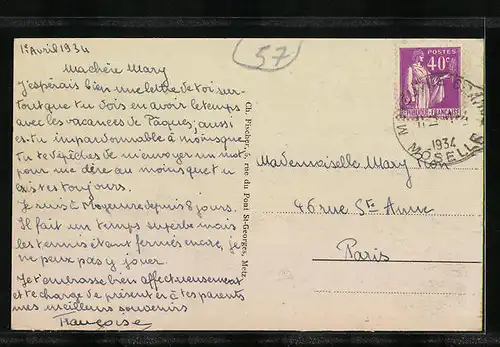 1er Avril 1934
Ma chère Mary
J'espérais bien une lettre de toi sur-
tout que tu dois en avoir le temps
avec les vacances de Pâques; aussi
es-tu impardonnable à moins que
tu te dépêches de m'envoyer un mot
pour me dire au moins que tu
existes toujours.
Je suis à Moyeuvre depuis 8 jours.
Il fait un temps superbe mais
les tennis étant fermés encore, je
ne peux pas y jouer.
Je t'embrasse bien affectueusement
et te charge de présenter à tes parents
mes meilleurs souvenirs
Françoise
57
Ch. Fischer, 5, rue du Pont St-Georges, Metz.
POSTES
40c
RÉPUBLIQUE FRANÇAISE
1934
MOSELLE
Mademoiselle Mary
46 rue Ste Anne
Paris